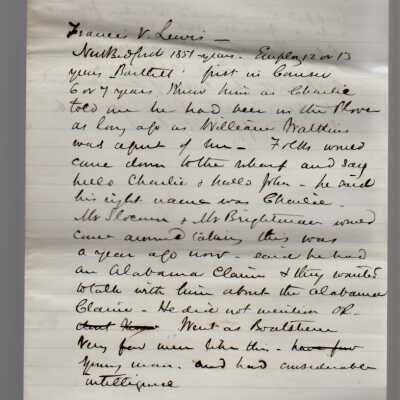 Francis V. Lewis —
New Bedford 1851 - years. Employ 12 or 13
years Bartlett first in Canser
6 or 7 years. Knew him as Charlie
told me he had been in the Plover
as long ago as William Watkins
was a part of her — Folks would
come down to the wharf and say
hello Charlie & hallo John - he said
his right name was Charlie.
Mr Slocum & Mr Brightman would
come around talking this was
a year ago now - said he had
an Alabama Claim & they wanted
to talk with him about the Alabama
Claim - He did not mention
Went as Boatsteerer
Very few men like this - have few
young man. and had considerable
intelligence